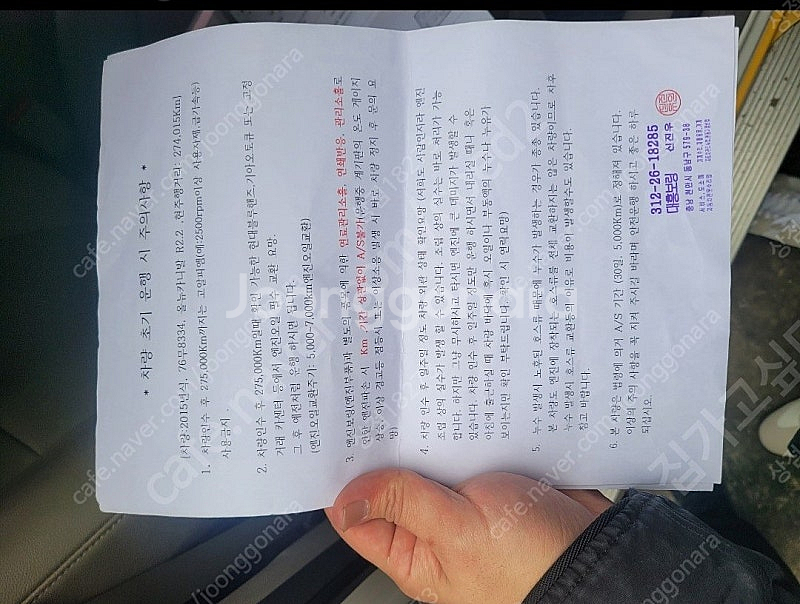 * 차량 초기 운행 시 주의사항 *
(차량:2015년식, 76무8334, 올뉴카니발 R2.2 현주행거리: 274,015Km)
1. 차량인수 후 275,000Km까지는 고알피엠(예:2500rpm이상 사용자제,급가속등)
사용금지 .
2. 차량인수 후 275,000Km일때 확인 가능한 현대블루핸즈,기아오토큐 또는 고정
거래 카센터 등에서 엔진오일 필수 교환 요망.
그 후 예전처럼 운행 하시면 됩니다.
(엔진오일교환주기: 5,000~7,000km엔진오일교환)
3. 엔진보링(엔진부품)과 별도의 품목에 의한 연료관리소홀, 연쇄반응, 관리소홀로
인한 엔진파손 시 Km 기간 상관없이 A/S불가(운행중 계기판의 온도 게이지
상승, 이상 경고등 점등시, 또는 이상소음 발생 시 바로 차량 정지 후 문의 요
망)
4. 차량 인수 후 일주일 정도 차량 외관 상태 확인요망 (저희도 사람인지라 엔진
조립 상의 실수가 발생 할 수 있습니다. 조립 상의 실수는 바로 처리가 가능
합니다. 하지만 그냥 무시하시고 타시면 엔진에 큰 데미지가 발생할 수
있습니다 차량 인수 후 일주일 정도만 운행 하시면서 내리실 때나 혹은
아침에 출근하실 때 차량 바닥에 혹시 오일이나 부동액의 누수나 누유가
보이는지만 확인 부탁드립니다. 확인 시 연락요망)
5. 누수 발생시 노후된 호스류 때문에 누수가 발생하는 경우가 종종 있습니다.
본 차량도 엔진에 장착되는 호스류를 전체 교환하지는 않은 차량이므로 차후
누수 발생시 호스류 교환등의 이유로 비용이 발생할수도 있습니다.
참고 바랍니다.
6. 본 차량은 법령에 의거 A/S 기간 (30일, 5,000Km)로 정해져 있습니다.
이상의 주의 사항을 꼭 지켜 주시길 바라며 안전운행 하시고 좋은 하루
되십시오.
312-26-18285
대흥보링 신진우
충남 천안시 동남구 579-38
Joonggonara
cafe.naver.com/joonggonara